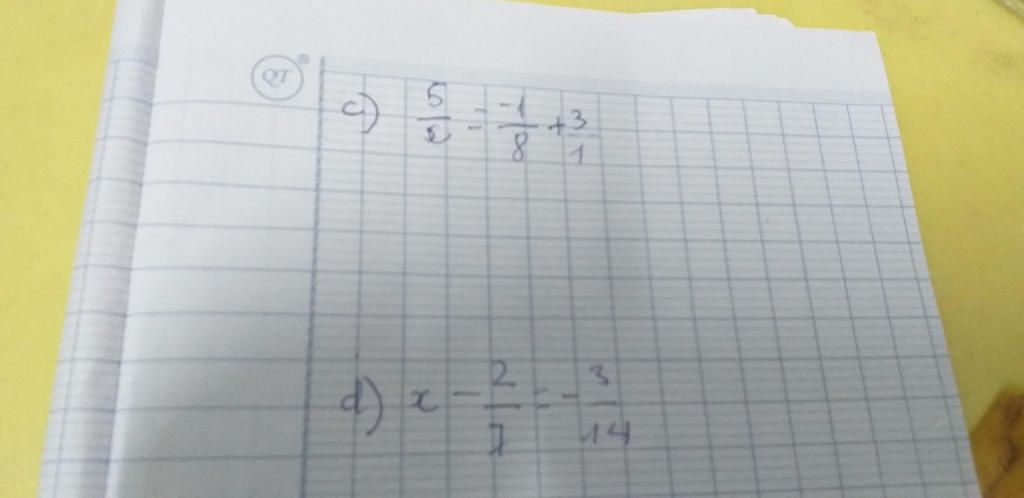 QT
c) 5/x = -1/8 + 3/1
d) x - 2/7 = - 3/14